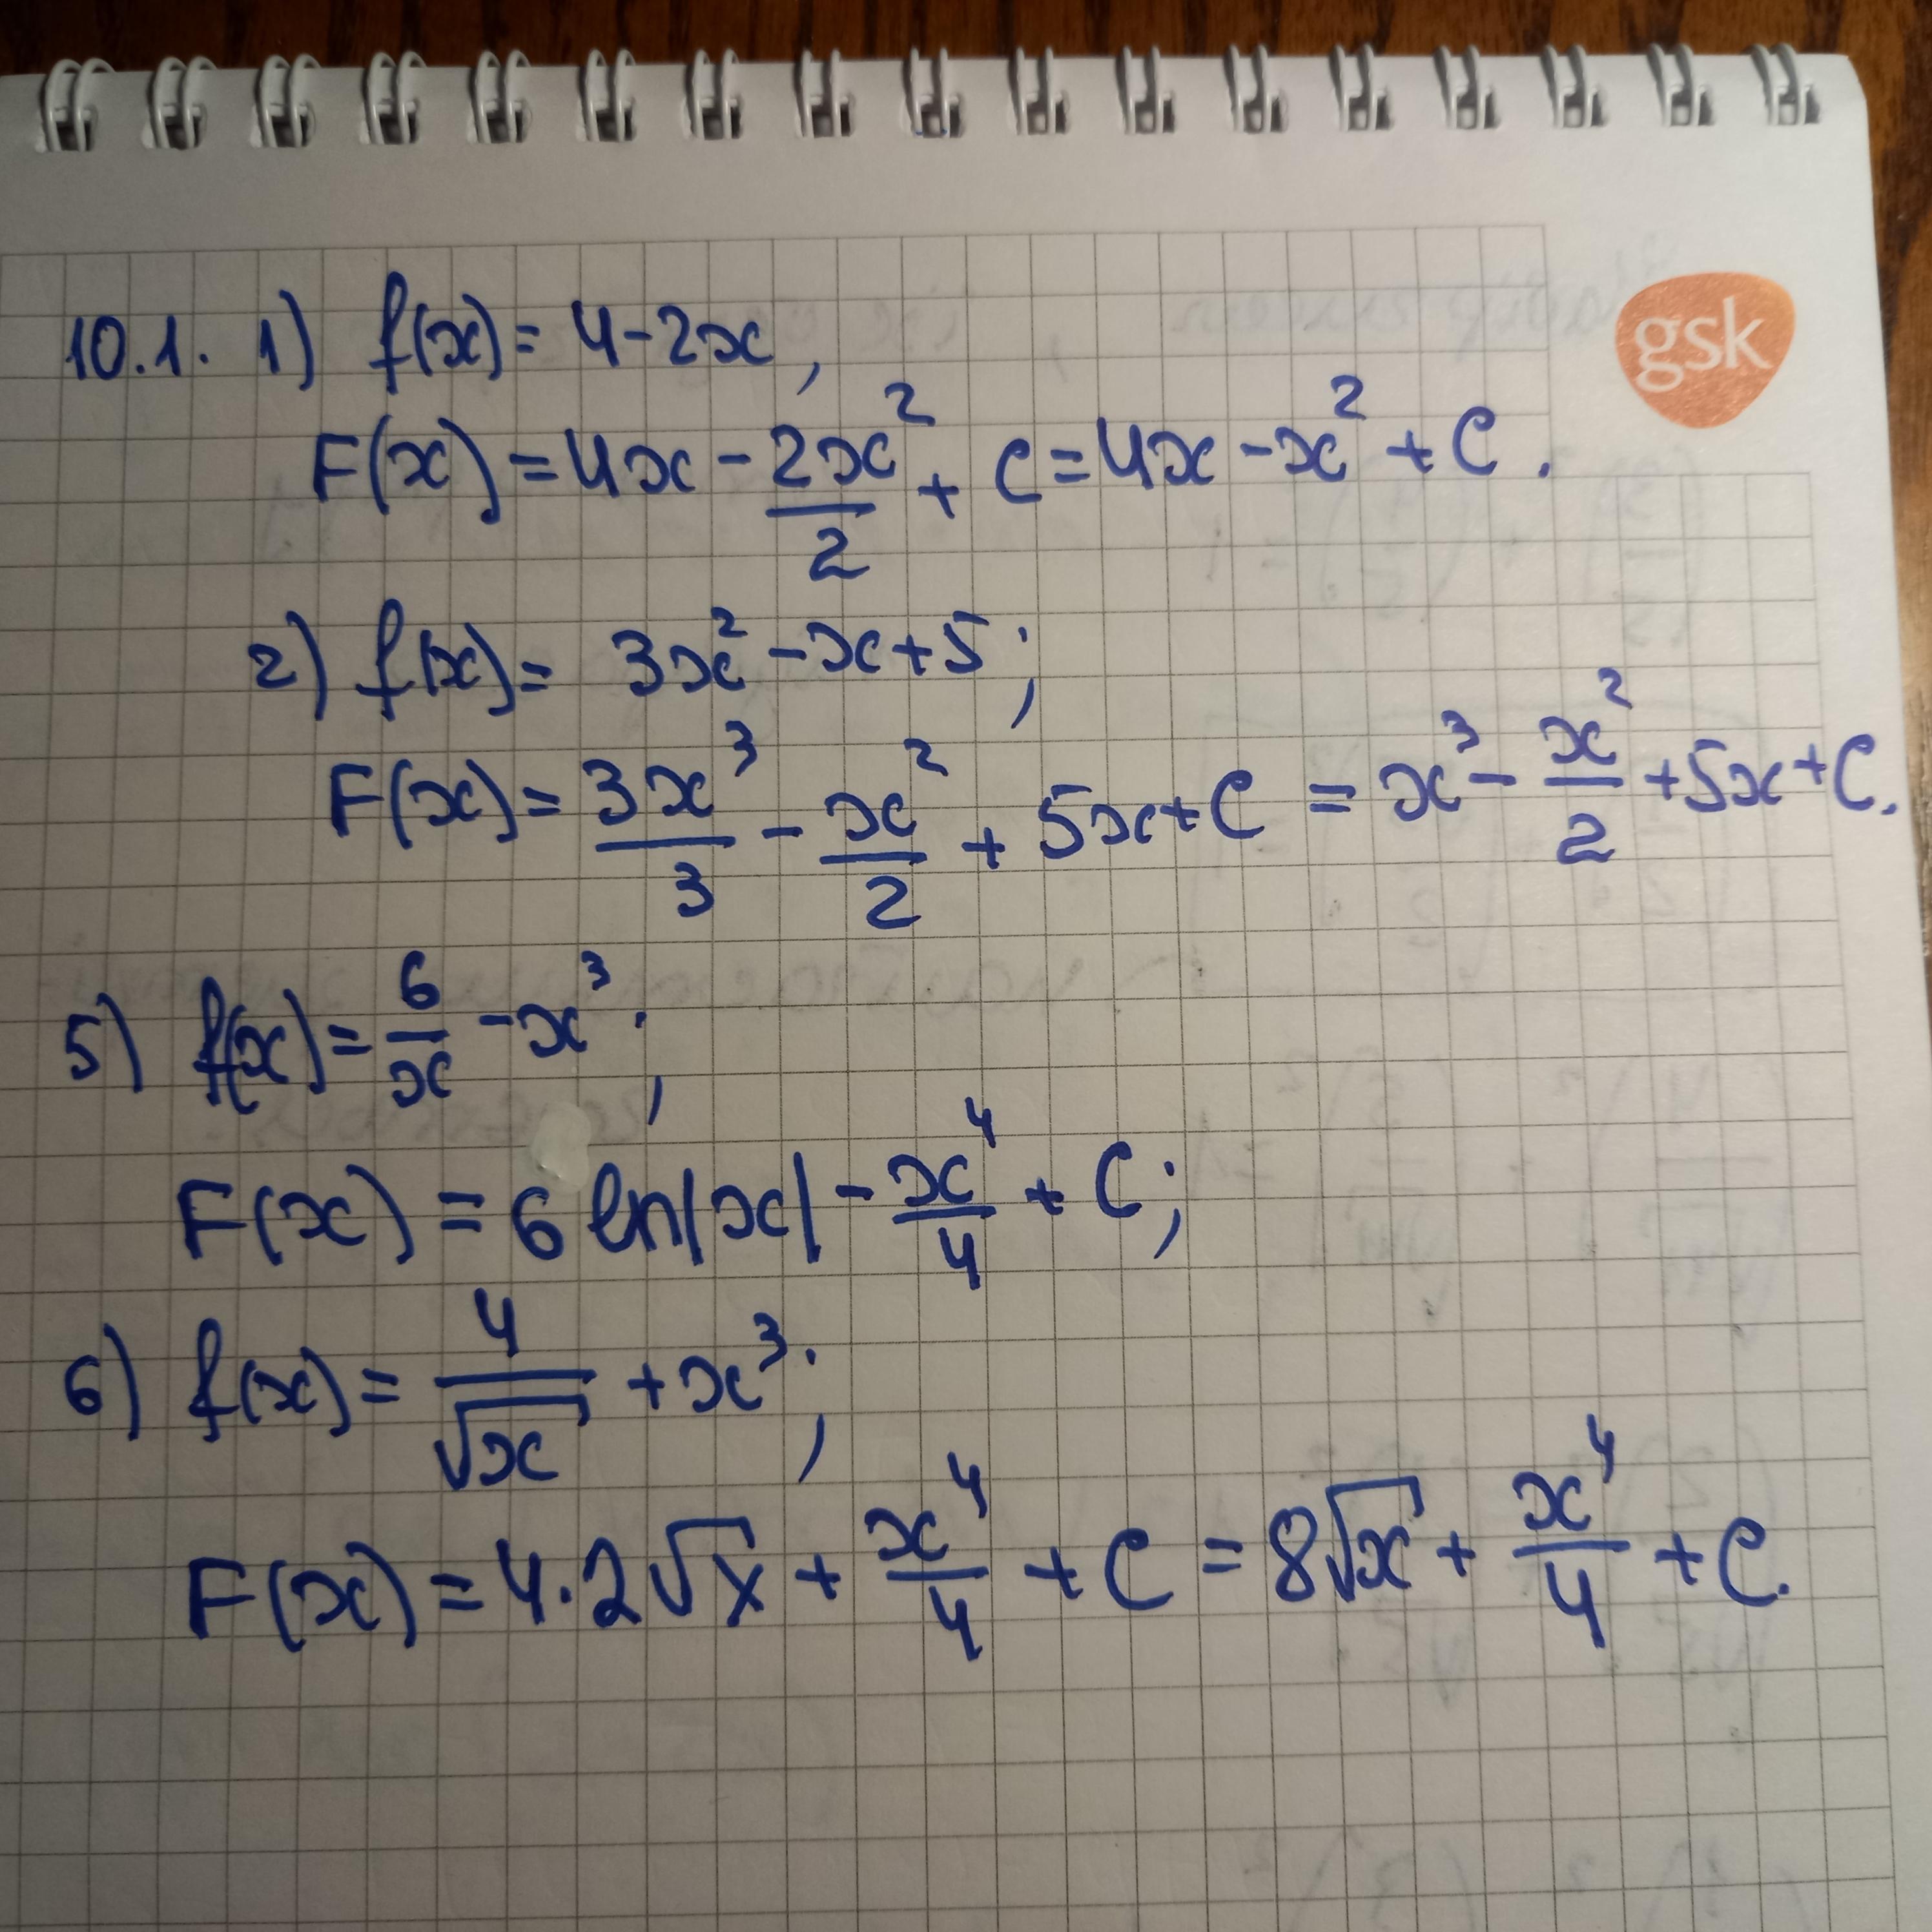 gsk
10.1. 1) f(x) = 4-2x,
F(x) = 4x - 2x²/2 + C = 4x - x² + C.
2) f(x) = 3x² - x + 5;
F(x) = 3x³/3 - x²/2 + 5x + C = x³ - x²/2 + 5x + C.
5) f(x) = 6/x - x³;
F(x) = 6 ln|x| - x⁴/4 + C;
6) f(x) = 4/√x + x³;
F(x) = 4·2√x + x⁴/4 + C = 8√x + x⁴/4 + C.